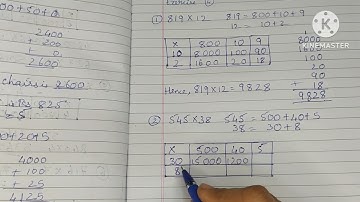 00+50+8
2400
+ 200
0
2600
chairs is 2600
825
00+20+5
4000
+ 100
+ 25
4125
① 819×12 819 = 800+10+9
12 = 10+2
× 800 10 9
10 8000 100 90
2 1600 20 18
8000
1600
100
20
90
+ 18
9828
Hence, 819×12 = 9828
② 545×38 545 = 500+40+5
38 = 30+8
× 500 40 5
30 15000 1200
8
KINEMASTER